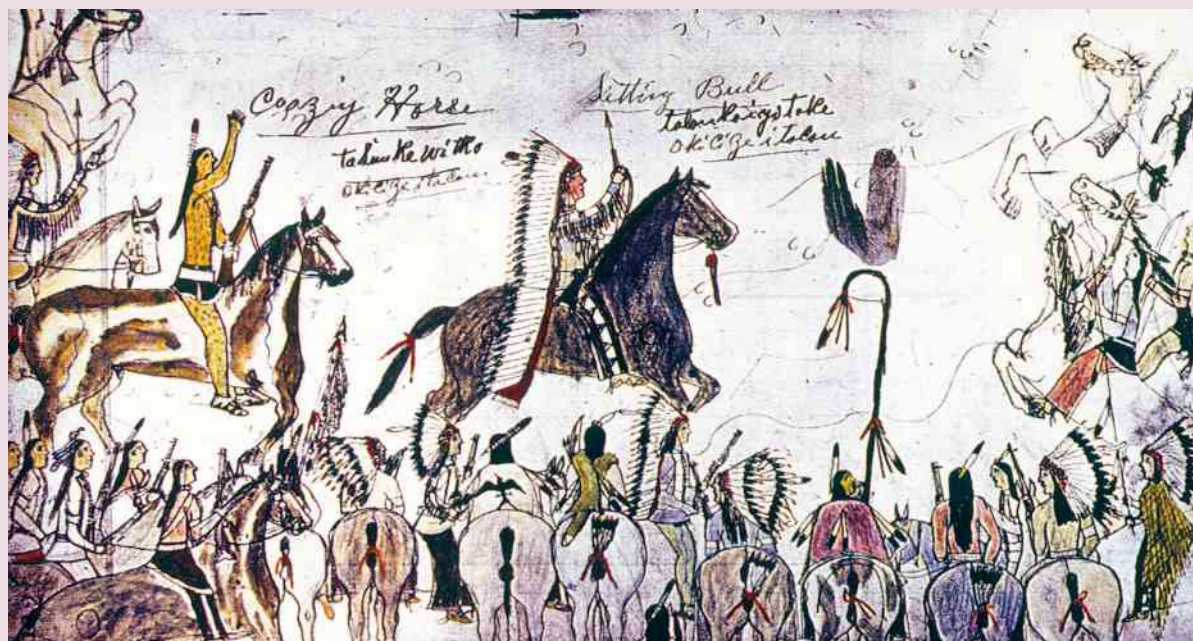 Crazy Horse
tasunke witko
okicize itacan
Sitting Bull
tatanka iyotake
okicize itacan